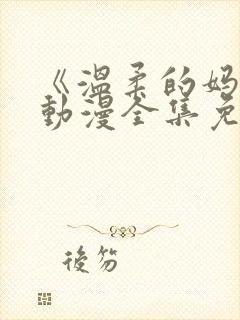 《温柔的妈
動漫全集免
後笏